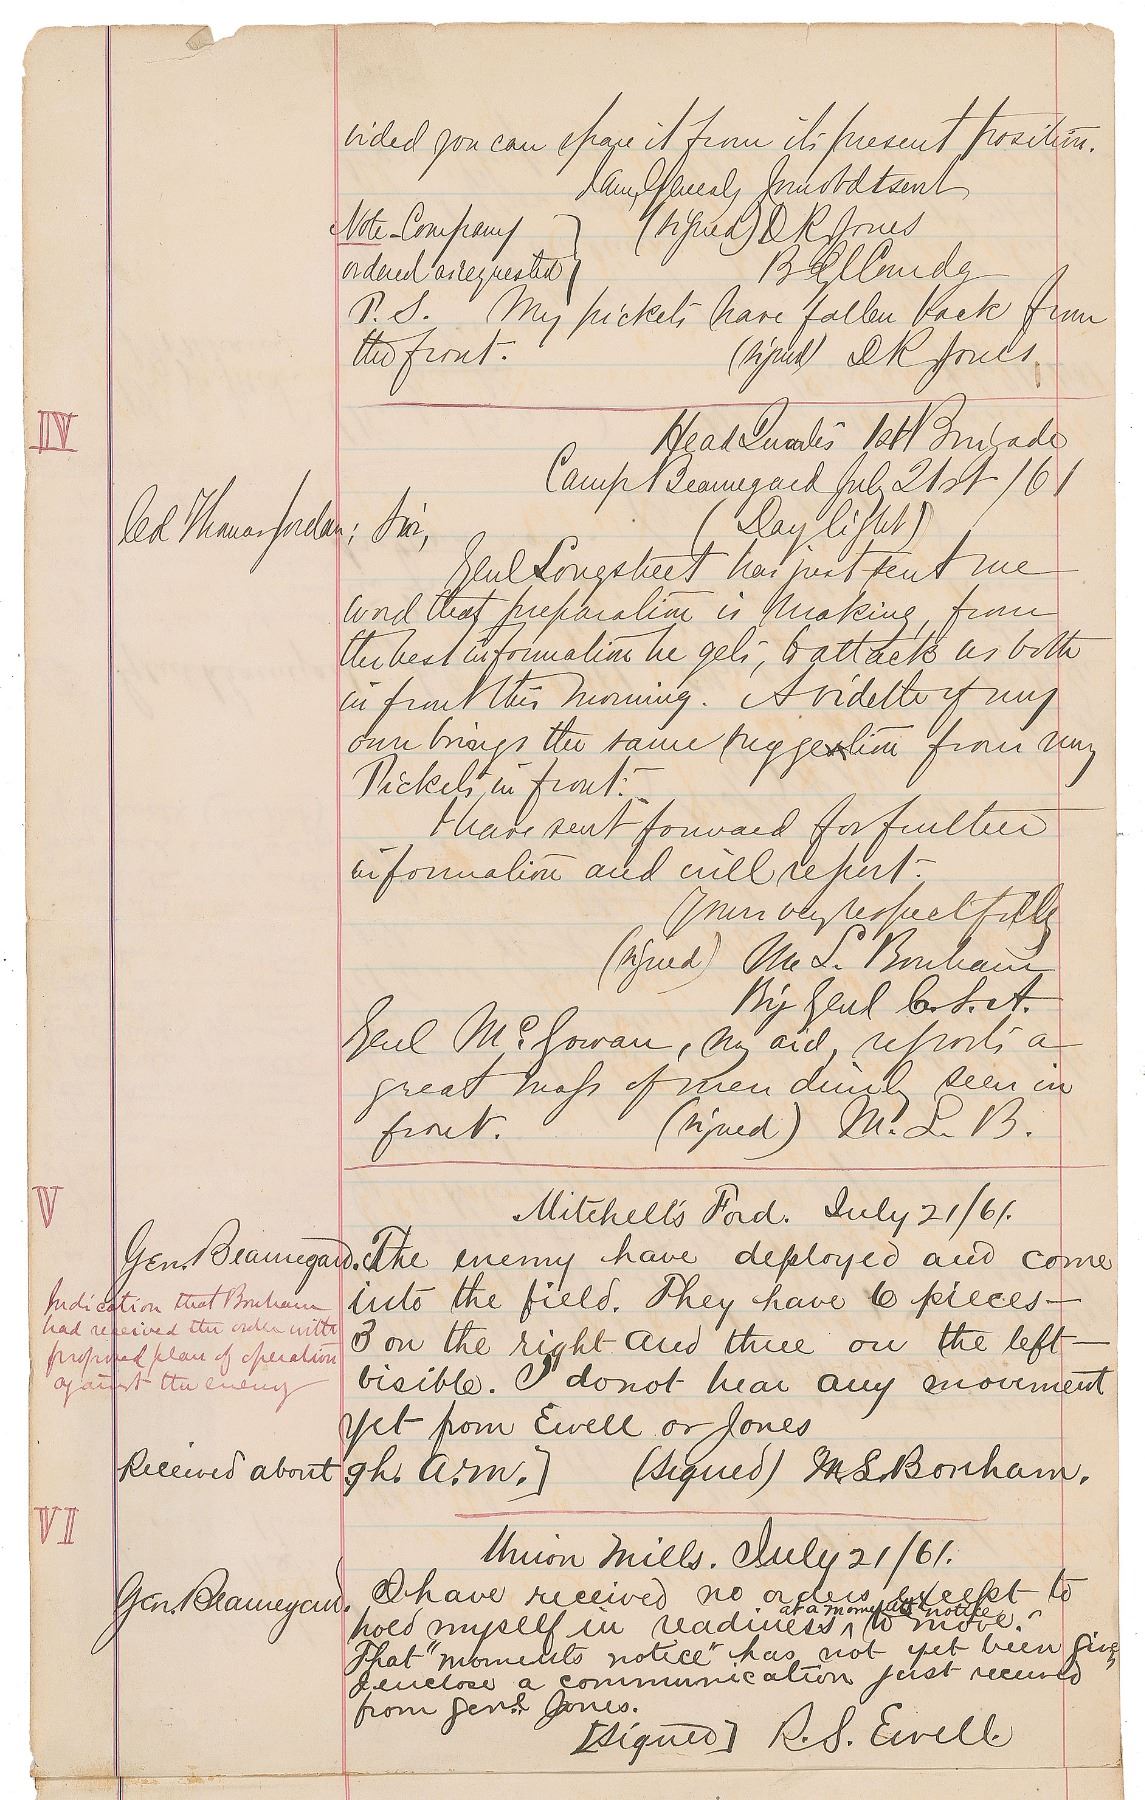 vided you can spare it from its present position.
I am, General, Your obdt servt
Note - Company (signed) D R Jones
ordered as requested B Gl Comdg
P.S. My pickets have fallen back from
the front. (signed) D R Jones.
IV
Head Quarters 1st Brigade
Camp Beauregard July 21st /61
Col Thomas Jordan; Sir, (Day light)
Genl Longstreet has just sent me
word that preparation is making, from
the best information he gets, to attack us both
in front this morning. A vidette of my
own brings the same suggestion from my
Pickets in front.-
I have sent forward for further
information and will report.-
Yours very respectfully
(signed) M. L. Bonham
Brig Genl C.S.A.
Genl McGowan, my aid, reports a
great mass of men dimly seen in
front. (signed) M. L. B.
V
Mitchell's Ford. July 21/61.
Gen. Beauregard. The enemy have deployed and come
into the field. They have 6 pieces—
3 on the right and three on the left—
visible. I do not hear any movement
yet from Ewell or Jones
Indication that Bonham
had received the order with
proposed plan of operation
against the enemy
Received about 9h. A.M.] (signed) M L Bonham.
VI
Union Mills. July 21/61.
Gen. Beauregard. I have received no orders except to
hold myself in readiness ^ at a moments notice to move.
That "moments notice" has not yet been given
I enclose a communication just received
from Genl Jones.
[Signed] R. S. Ewell.